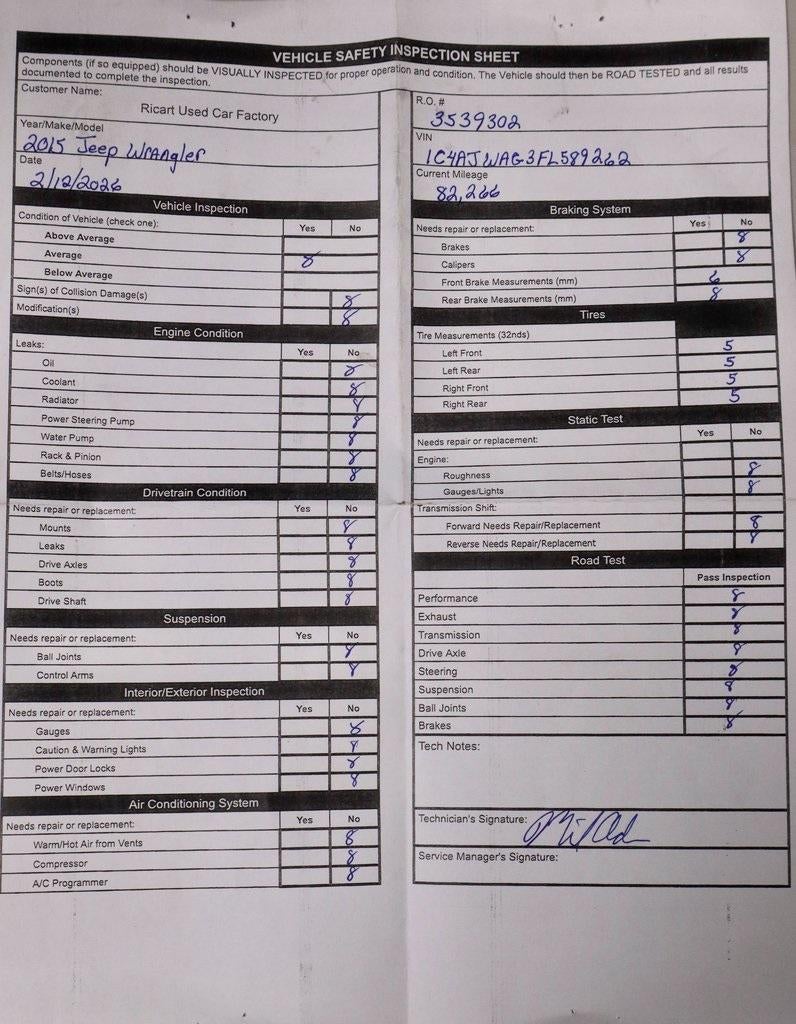 VEHICLE SAFETY INSPECTION SHEET
Components (if so equipped) should be VISUALLY INSPECTED for proper operation and condition. The Vehicle should then be ROAD TESTED and all results
documented to complete the inspection.
Customer Name:
Ricart Used Car Factory
Year/Make/Model
2015 Jeep Wrangler
Date
2/12/2026
R.O. #
3539302
VIN
1C4AJWAG3FL589262
Current Mileage
82,266
Vehicle Inspection
Condition of Vehicle (check one): Yes No
Above Average
Average 8
Below Average
Sign(s) of Collision Damage(s) 8
Modification(s) 8
Engine Condition
Leaks: Yes No
Oil 8
Coolant 8
Radiator 8
Power Steering Pump 8
Water Pump 8
Rack & Pinion 8
Belts/Hoses 8
Drivetrain Condition
Needs repair or replacement: Yes No
Mounts 8
Leaks 8
Drive Axles 8
Boots 8
Drive Shaft 8
Suspension
Needs repair or replacement: Yes No
Ball Joints 8
Control Arms 8
Interior/Exterior Inspection
Needs repair or replacement: Yes No
Gauges 8
Caution & Warning Lights 8
Power Door Locks 8
Power Windows 8
Air Conditioning System
Needs repair or replacement: Yes No
Warm/Hot Air from Vents 8
Compressor 8
A/C Programmer 8
Braking System
Needs repair or replacement: Yes No
Brakes 8
Calipers 8
Front Brake Measurements (mm) 6
Rear Brake Measurements (mm) 8
Tires
Tire Measurements (32nds)
Left Front 5
Left Rear 5
Right Front 5
Right Rear 5
Static Test
Needs repair or replacement: Yes No
Engine:
Roughness 8
Gauges/Lights 8
Transmission Shift:
Forward Needs Repair/Replacement 8
Reverse Needs Repair/Replacement 8
Road Test
Pass Inspection
Performance 8
Exhaust 8
Transmission 8
Drive Axle 8
Steering 8
Suspension 8
Ball Joints 8
Brakes 8
Tech Notes:
Technician's Signature:
Service Manager's Signature: